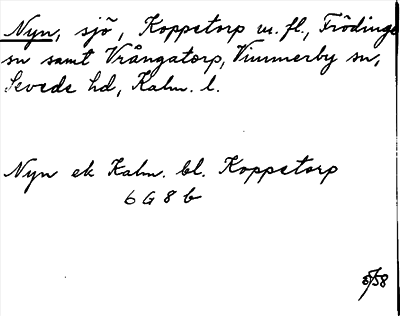 Nyn, sjö, Koppetorp m. fl., Frödinge
sn samt Vrångatorp, Vimmerby sn,
Sevede hd, Kalm. l.
Nyn ek Kalm. bl. Koppetorp
6 G 8 b